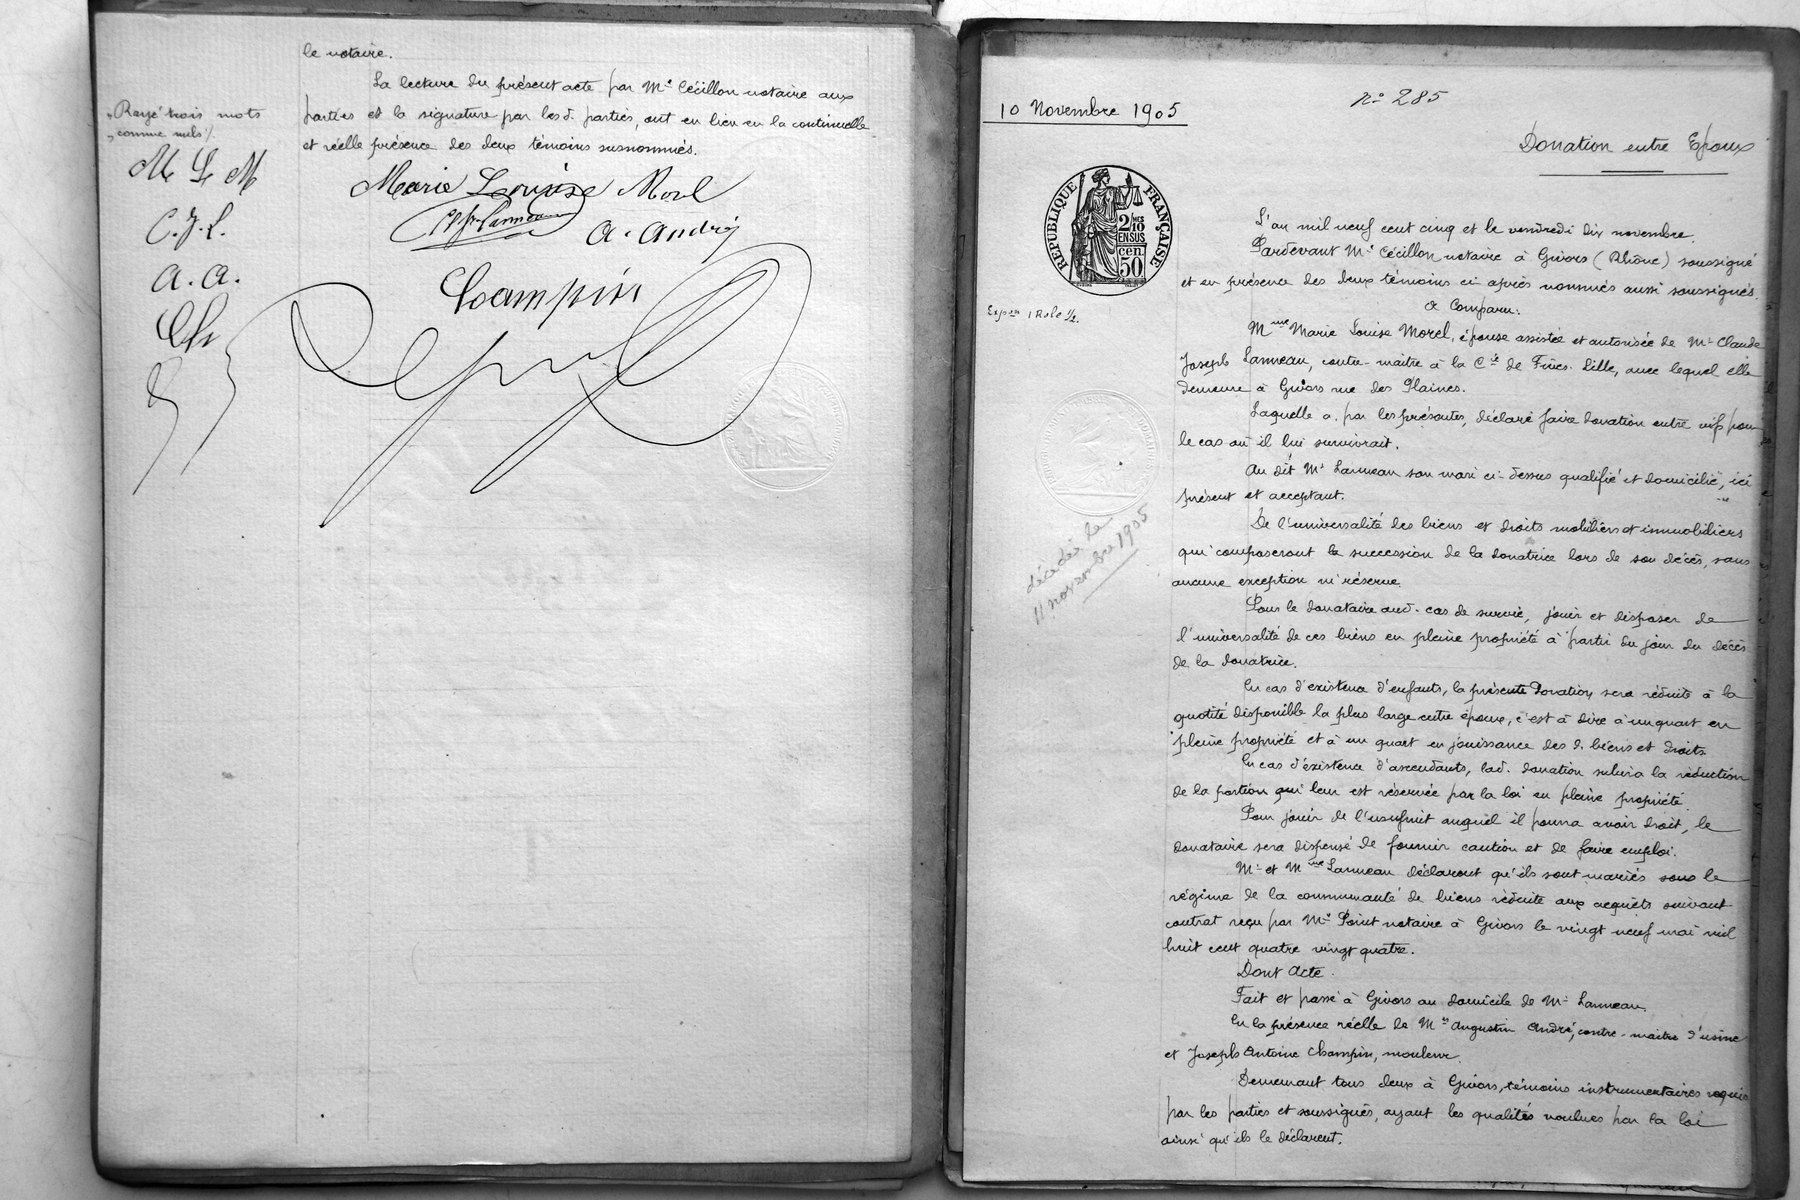 le notaire.
La lecture du présent acte par Me Cécillon notaire aux
parties et la signature par les d. parties, ont eu lieu en la continuelle
et réelle présence des deux témoins susnommés.
Rayé trois mots
comme nuls
M L M
C. J. L.
a. a.
Ch
Marie Louise Morel
CJ Lanneau
a. andré
Champin
10 Novembre 1905
no 285
Donation entre Epoux
RÉPUBLIQUE FRANÇAISE
2/10
EN SUS
50 cen.
Expon 1 Role 1/2.
décédée le
11 novembre 1905
L'an mil neuf cent cinq et le vendredi dix novembre.
Pardevant Me Cécillon notaire à Givors (Rhône) soussigné
et en présence des deux témoins ci après nommés aussi soussignés.
a Comparu:
Mme Marie Louise Morel, épouse assistée et autorisée de Mr Claude
Joseph Lanneau, contre-maître à la Cie de Fives-Lille, avec lequel elle
demeure à Givors rue des Plaines.
Laquelle a, par les présentes, déclaré faire donation entre vifs pour
le cas où il lui survivrait.
Au dit Mr Lanneau son mari ci-dessus qualifié et domicilié, ici
présent et acceptant.
De l'universalité des biens et droits mobiliers et immobiliers
qui composeront la succession de la donatrice lors de son décès, sans
aucune exception ni réserve.
Pour le donataire aud. cas de survie, jouir et disposer de
l'universalité de ces biens en pleine propriété à partir du jour du décès
de la donatrice.
En cas d'existence d'enfants, la présente Donation sera réduite à la
quotité disponible la plus large entre époux, c'est à dire à un quart en
pleine propriété et à un quart en jouissance des d. biens et droits.
En cas d'existence d'ascendants, lad. donation subira la réduction
de la portion qui leur est réservée par la loi en pleine propriété.
Pour jouir de l'usufruit auquel il pourra avoir droit, le
donataire sera dispensé de fournir caution et de faire emploi.
Mr et Mme Lanneau déclarent qu'ils sont mariés sous le
régime de la communauté de biens réduite aux acquêts suivant
contrat reçu par Me Point notaire à Givors le vingt neuf mai mil
huit cent quatre vingt quatre.
Dont Acte.
Fait et passé à Givors au domicile de Mr Lanneau.
En la présence réelle de Mrs Augustin André, contre-maître d'usine
et Joseph Antoine Champin, mouleur.
Demeurant tous deux à Givors, témoins instrumentaires requis
par les parties et soussignés, ayant les qualités voulues par la loi
ainsi qu'ils le déclarent.